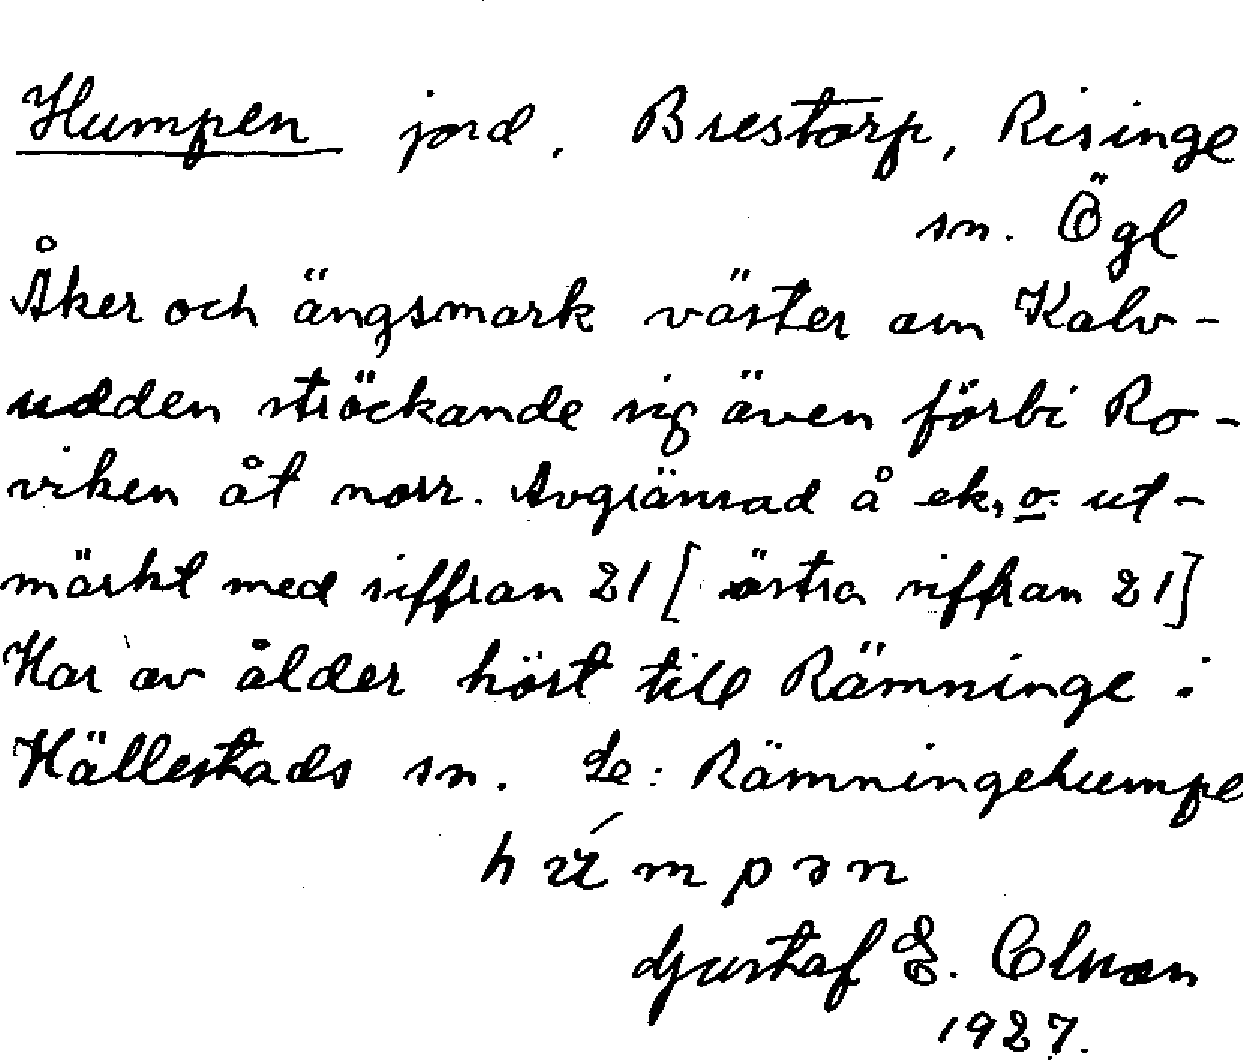 Humpen jord. Brestorp, Risinge
sn. Ögl
Åker och ängsmark väster om Kalv-
udden sträckande sig även förbi Ro-
viken åt norr. Avgränsad å ek, o. ut-
märkt med siffran 21 [östra siffran 21]
Har av ålder hört till Rämninge i
Hällestads sn. Le: Rämningehumpe
húmpən
Gustaf E.
1927.